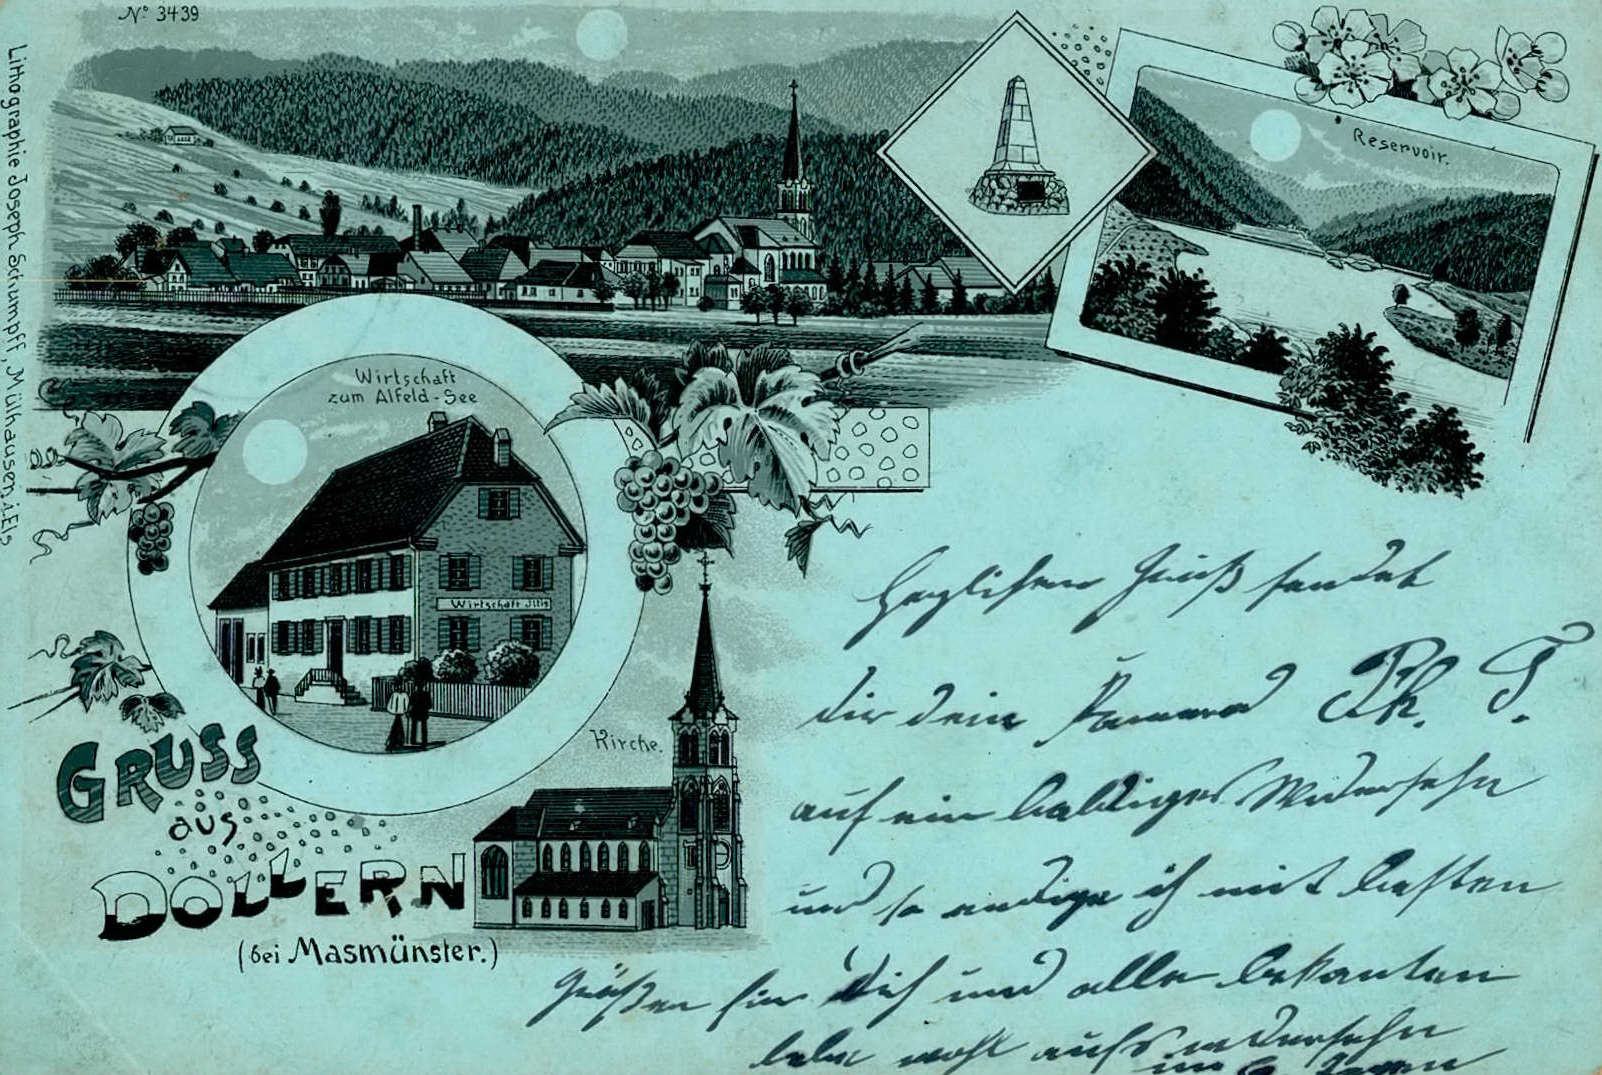 Nº 3439
Lithographie Joseph Schumpff, Mülhausen i. Els
Reservoir.
Wirtschaft
zum Alfeld-See
Wirtschaft Illig
Kirche.
GRUSS
aus
DOLLERN
(bei Masmünster.)
Herzlichen Gruß sendet
dir dein Kamerad Ph. T.
auf ein baldiges Widersehn
und so endige ich mit besten
Grüßen für Dich und alle bekanten
lebe wohl aufs widersehn
im